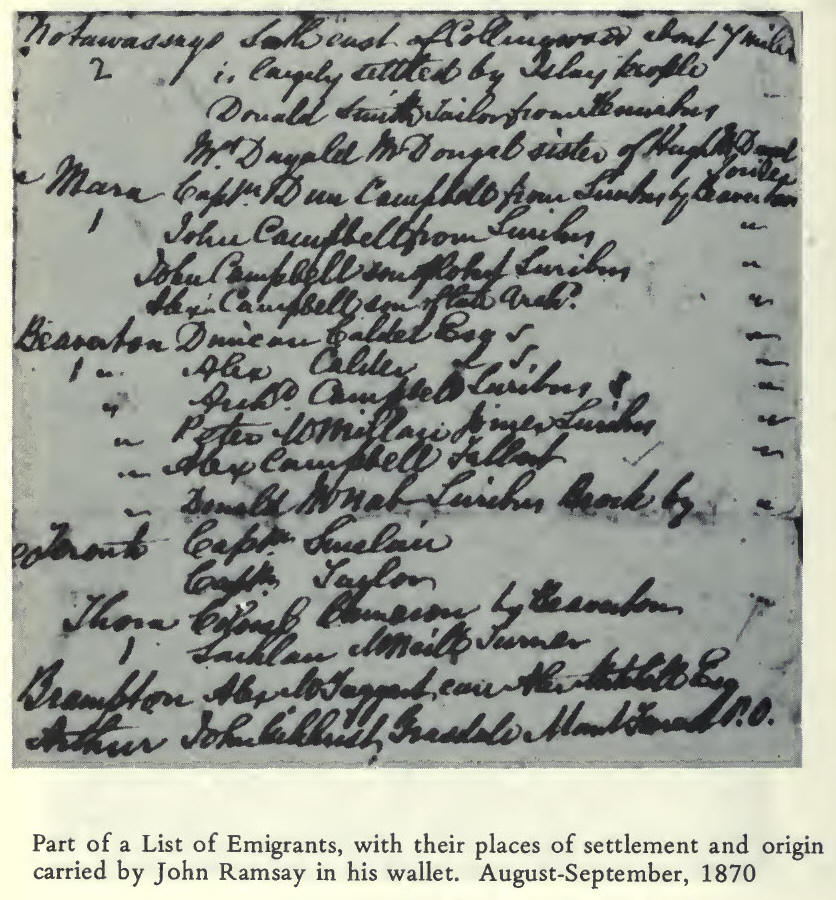 Notawassaga South east of Collingwood about 7 miles
2 is largely settled by Islay people
Donald Smith Tailor from
Mrs Dugald McDougal sister of Hugh McDougal
Mara Captn Dun Campbell from Luribus by Beaverton
1 John Campbell from Luribus "
John Campbell son of John Luribus "
Alexr Campbell son of late Archd. "
Beaverton Duncan Calder Esq "
1 " Alex Calder "
" Archd Campbell Luribus & "
" Peter McMillan Joiner Luribus "
" Alex Campbell "
" Donald McNab Luribus Brock by "
Toronto Captn Sinclair
Captn Taylor
Thora Colonel Cameron by Beaverton
1 Lachlan McNeill Turner
Brampton Alex McTaggart care Alex Esq
Arthur John Gilchrist, Mount Forest P.O.
Part of a List of Emigrants, with their places of settlement and origin
carried by John Ramsay in his wallet. August-September, 1870